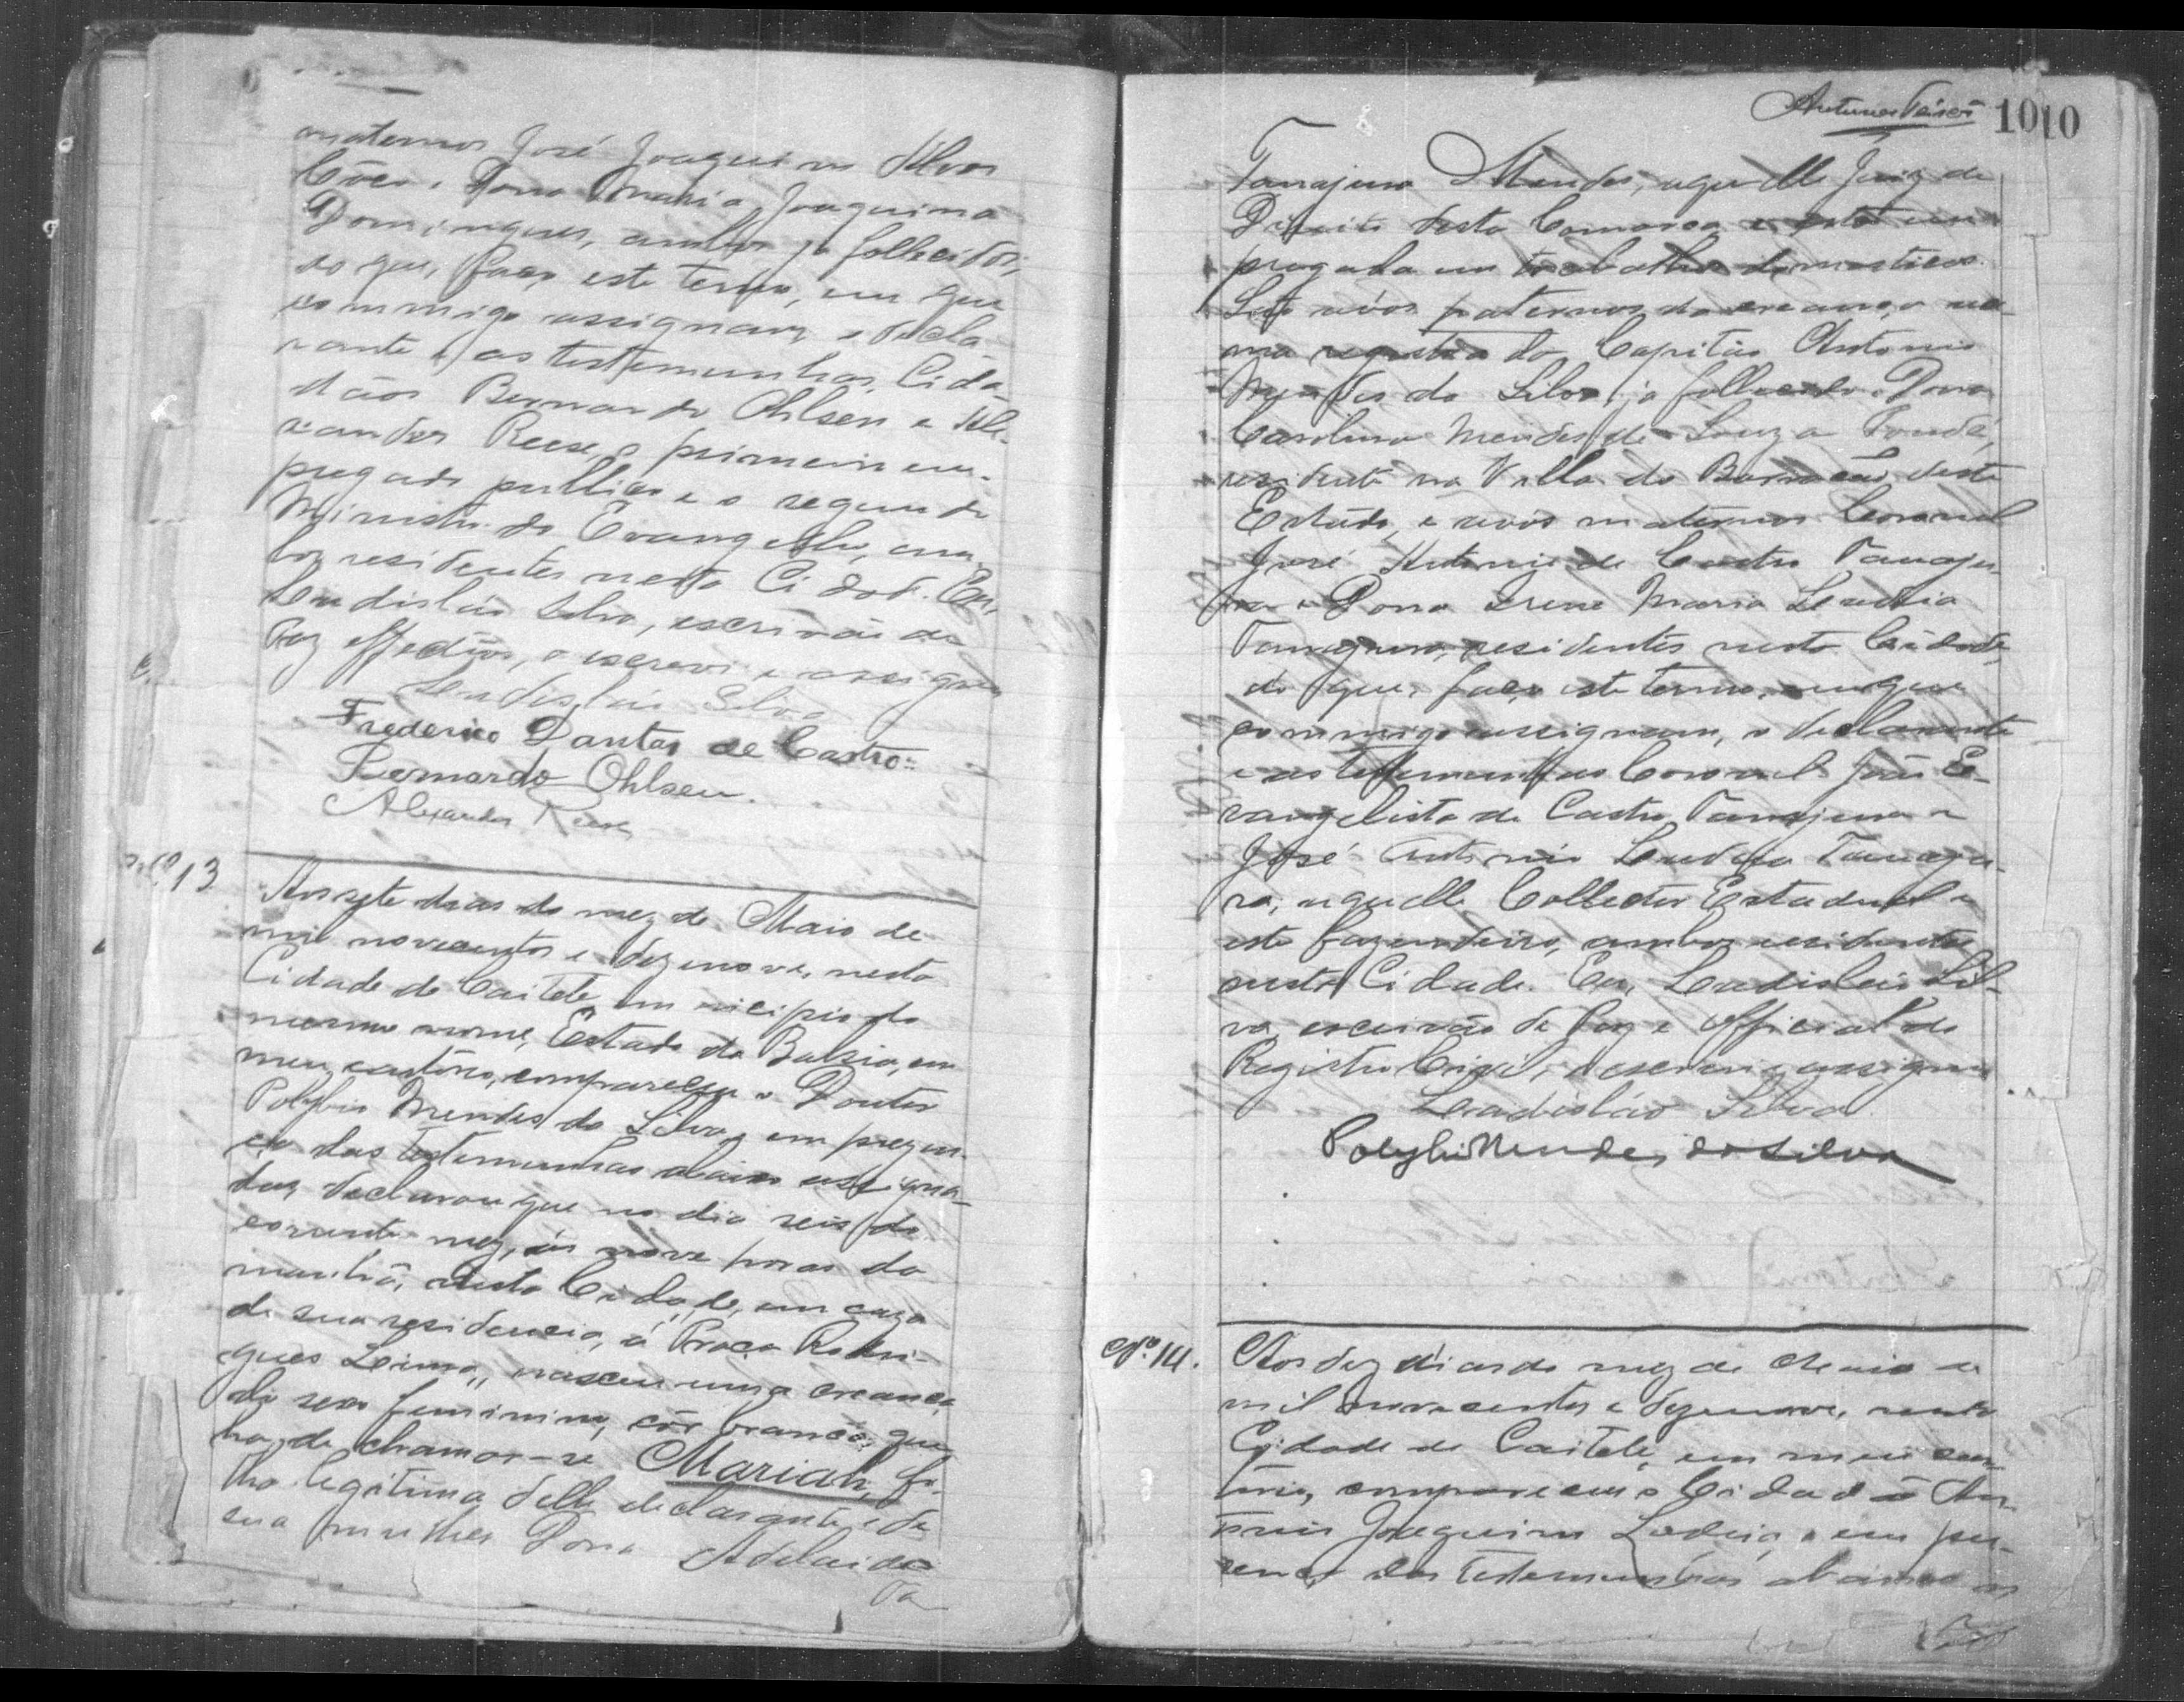 maternos José Joaquim da Silva
Côco e Dona Maria Joaquina
Domingues, ambos ja fallecidos,
do que, faço este termo, em que
commigo assignam, o decla-
rante e as testemunhas, Cida-
dãos Bernardo Ohlsen e Ale-
xander Reese, o primeiro em-
pregado publico e o segundo
Ministro do Evangelho, am-
bos residentes nesta Cidade. Eu,
Leadisláo Silva, escrivão de
Paz effectivo, o escrevi e assigno
Leadisláo Silva
Frederico Dantas de Castro
Bernardo Ohlsen.
Alexander Reese
Nº 13
Aos sete dias do mez de Maio de
mil novecentos e dezenove, nesta
Cidade de Caiteté, municipio do
mesmo nome, Estado da Bahia, em
meu cartório, compareceu o Doutor
Polybio Mendes da Silva, e em prezen-
ça das testemunhas abaixo assigna-
das, declarou que no dia seis do
corrente mez, ás nove horas da
manhã, nesta Cidade, em caza
de sua residencia, á Praça Rodri-
gues Lima, nasceu uma creança
do sexo feminino, côr branca, que
ha de chamar-se Mariah, fi-
lha legitima delle declarante e de
sua mulher Dona Adelaide
Ta
Antunes
1010
Tanajura Mendes, aquelle Juiz de
Direito desta Comarca e esta em-
pregada em trabalhos domesticos.
São avós paternos da creança a
registra do Capitão Antonio
Mendes da Silva, ja fallecido e Dona
Carolina Mendes de Souza
residente na Villa do Barracão deste
Estado, e avós maternos Coronel
José Antonio de Castro Tanaju-
ra e Dona Irene Maria Leadia
Tanajura, residentes nesta Cidade,
do que, faço este termo, em que
commigo assignam, o declarante
e as testemunhas Coronel João E-
vangelista de Castro Tanajura e
José Antonio Tanaju-
ra, aquelle Collector Estadual e
este fazendeiro, ambos residentes
nesta Cidade. Eu, Leadisláo Sil-
va, escrivão de Paz e Official do
Registro Civil, o escrevi e assigno
Leadisláo Silva
Polybio Mendes da Silva
Nº 14.
Aos dez dias do mez de Maio de
mil novecentos e dezenove, nesta
Cidade de Caiteté, em meu car-
tório, compareceu o Cidadão An-
tonio Joaquim e em pre-
sença das testemunhas abaixo as